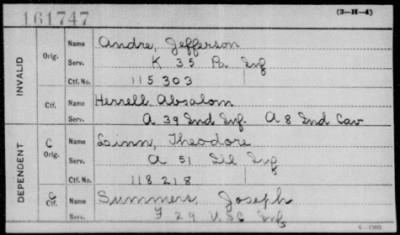 161747
(3-H-4)
INVALID
Orig.
Name Andre, Jefferson
Serv. K 35 Pa Inf
Ctf. No. 115303
Ctf.
Name Herrell Absalom
Serv. A 39 Ind Inf. A 8 Ind Cav
DEPENDENT
C
Orig.
Name Linn, Theodore
Serv. A 51 Ill Inf
Ctf. No. 118218
C
Ctf.
Name Summers, Joseph
Serv. F 29 U.S.C Inf